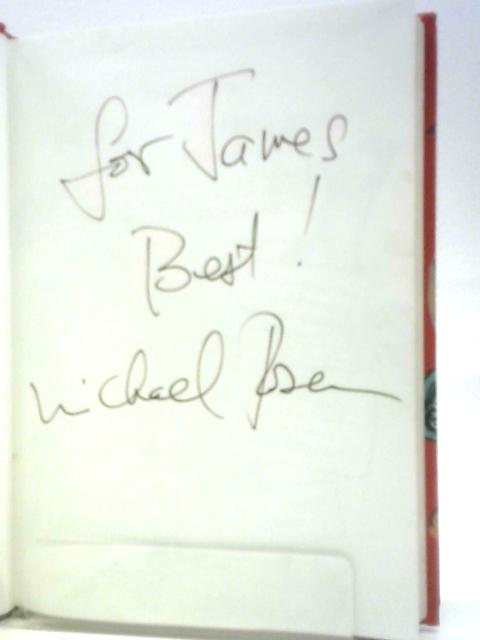 for James
Best!
Michael Rosen